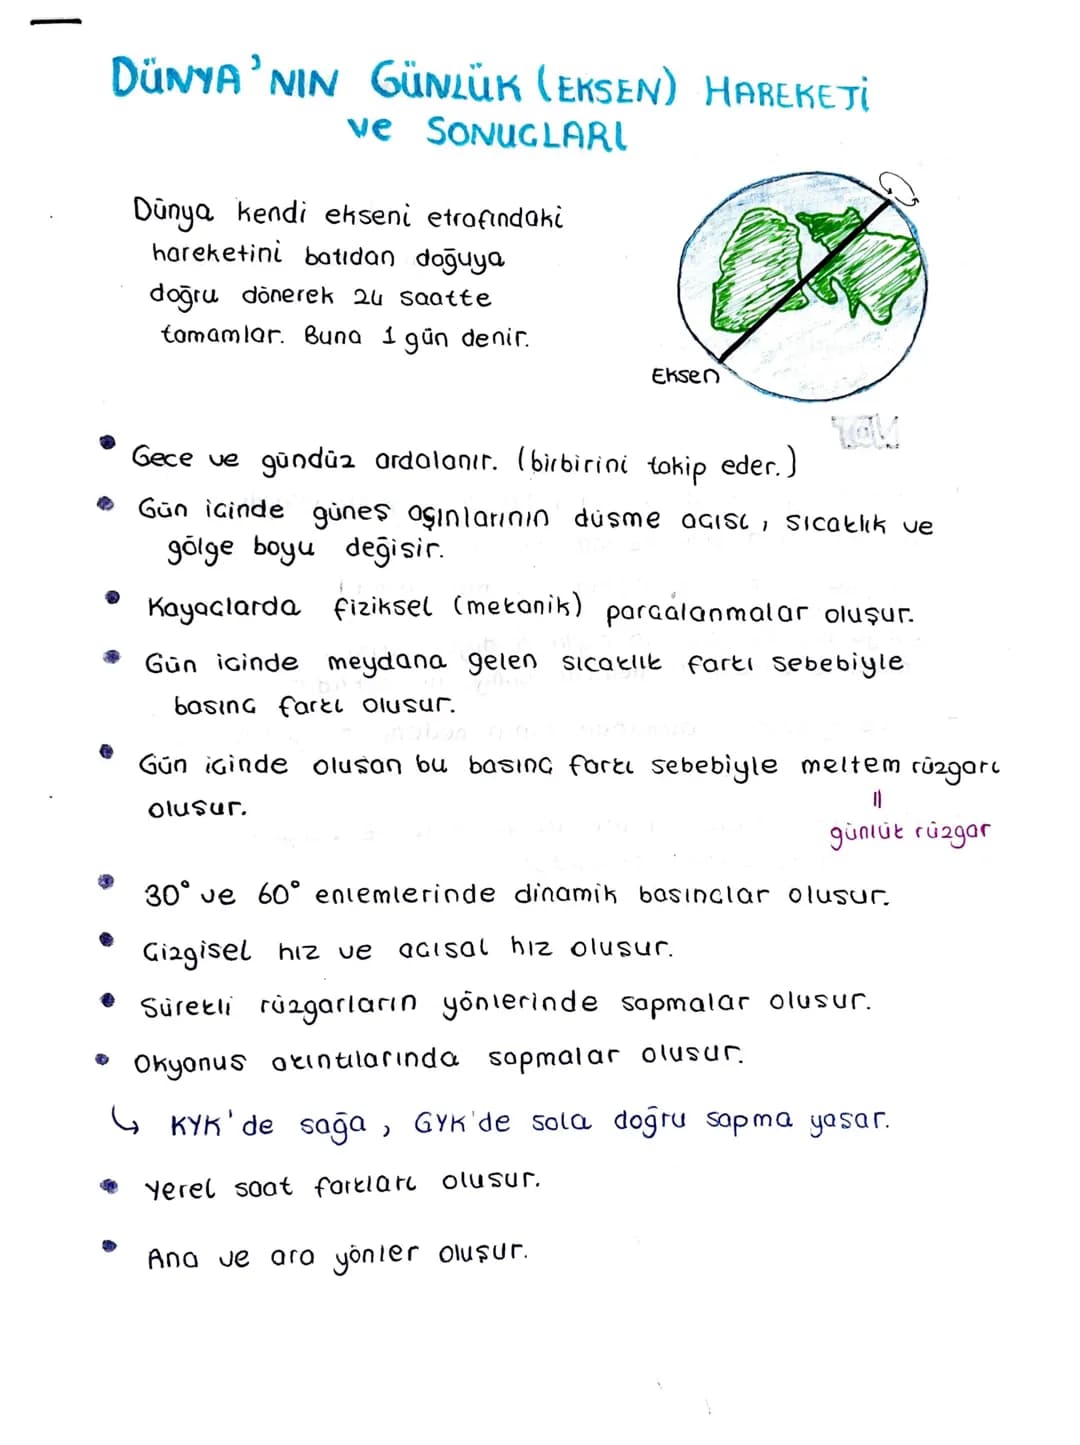 DÜNYA'NIN GÜNLÜK (EKSEN) HAREKETİ
ve SONUCLARI
Dünya kendi ekseni etrafındaki
hareketini batıdan doğuya
doğru dönerek 24 saatte
tamamlar. Buna 1 gün denir.
Eksen
Gece ve gündüz ardalanır. (birbirini takip eder.)
Gün içinde güneş aşınlarının düsme açısı, sıcaklık ve
gölge boyu değisir.
Kayaçlarda fiziksel (mekanik) parçalanmalar oluşur.
Gün içinde meydana gelen sıcaklık farkı sebebiyle
basınç farkı olusur.
Gün içinde olusan bu basınç farkı sebebiyle meltem rüzgarı
oluşur.
=
günlük rüzgar
30° ve 60° enlemlerinde dinamik basınçlar olusur.
Çizgisel hız ve açısal hız olusur.
Sürekli rüzgarların yönlerinde sapmalar olusur.
Okyanus akıntılarında sapmalar olusur.
↳ KYK'de sağa, GYK'de sola doğru sapma yasar.
Yerel saat farkları olusur.
Ana ve ara yönler oluşur.